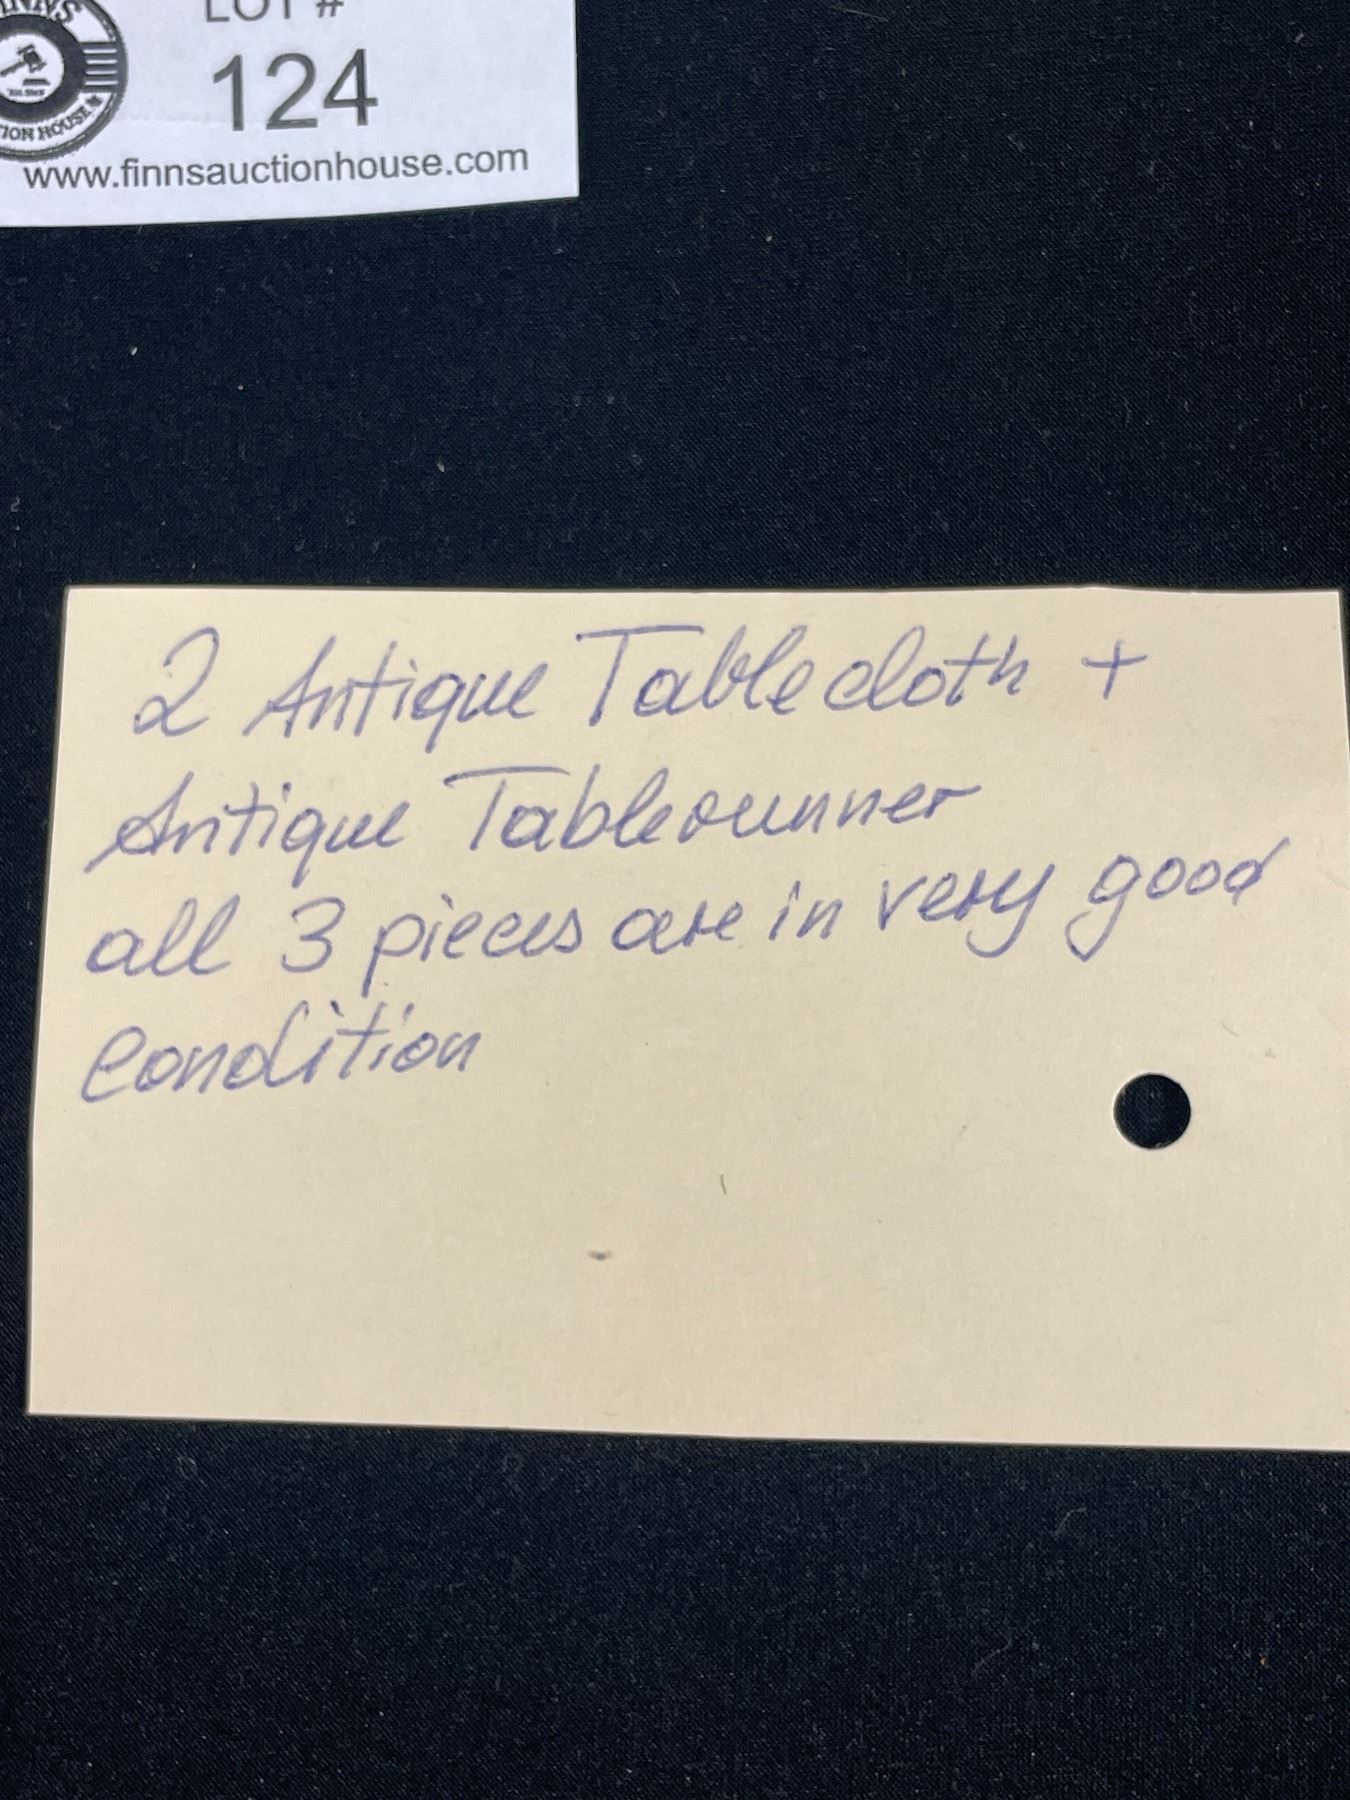 LOT #
124
www.finnsauctionhouse.com
2 Antique Tablecloth +
Antique Tablerunner
all 3 pieces are in very good
condition